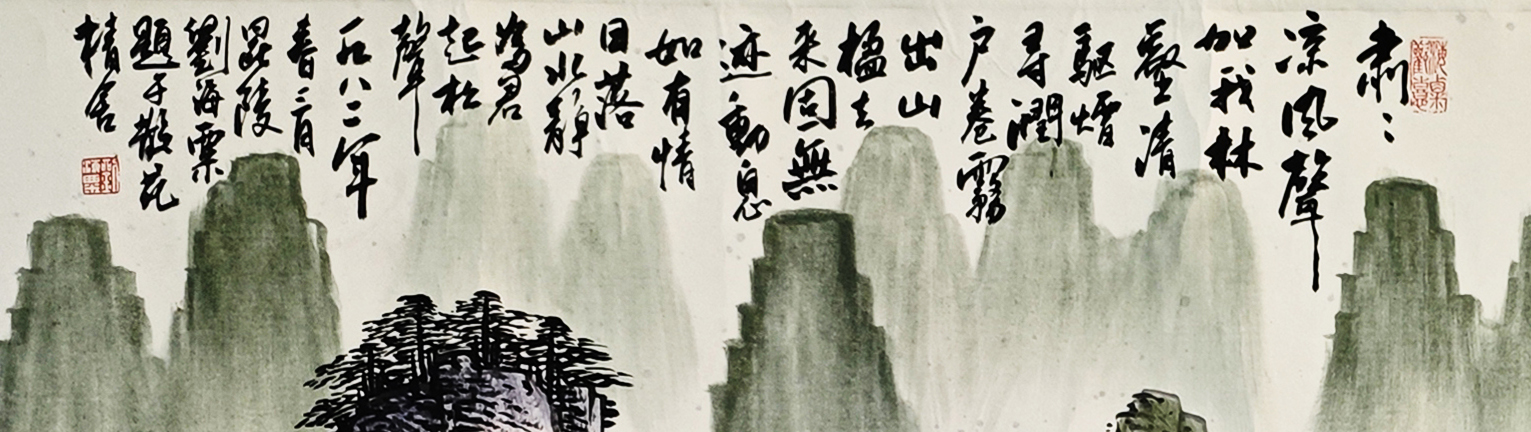 肅〻
凉風聲
加我林
壑清
驅煙
尋澗
戶卷霧
出山
楹去
来固無
迹動息
如有情
日落
山水靜
為君
起松
聲
一九八二年
春二月
毘陵
劉海粟
題于散花
精舍